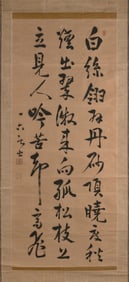 白絲翎羽丹砂頂曉度秋
煙出翠微來向孤松枝上
立見人吟苦卽高飛
一六居士